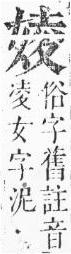 㛲
俗字舊註音
凌女字泥